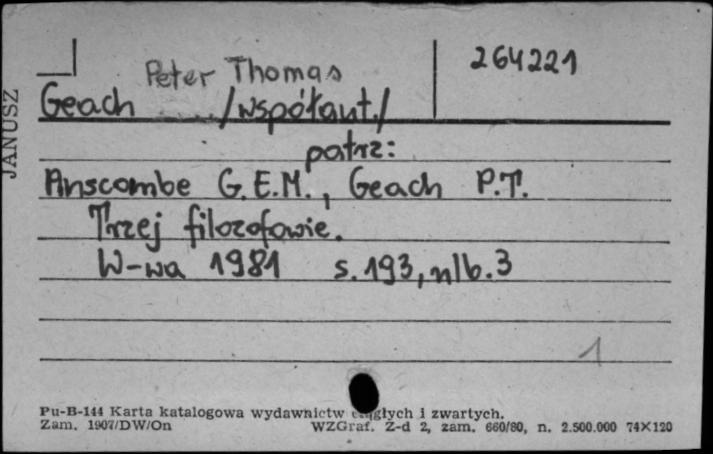 264221
Peter Thomas
Geach /współaut./
patrz:
Anscombe G.E.M., Geach P.T.
Trzej filozofowie.
W-wa 1981 s.193, nlb.3
1
JANUSZ
Pu-B-144 Karta katalogowa wydawnictw ciągłych i zwartych.
Zam. 1907/DW/On WZGraf. Z-d 2, zam. 660/80, n. 2.500.000 74×120